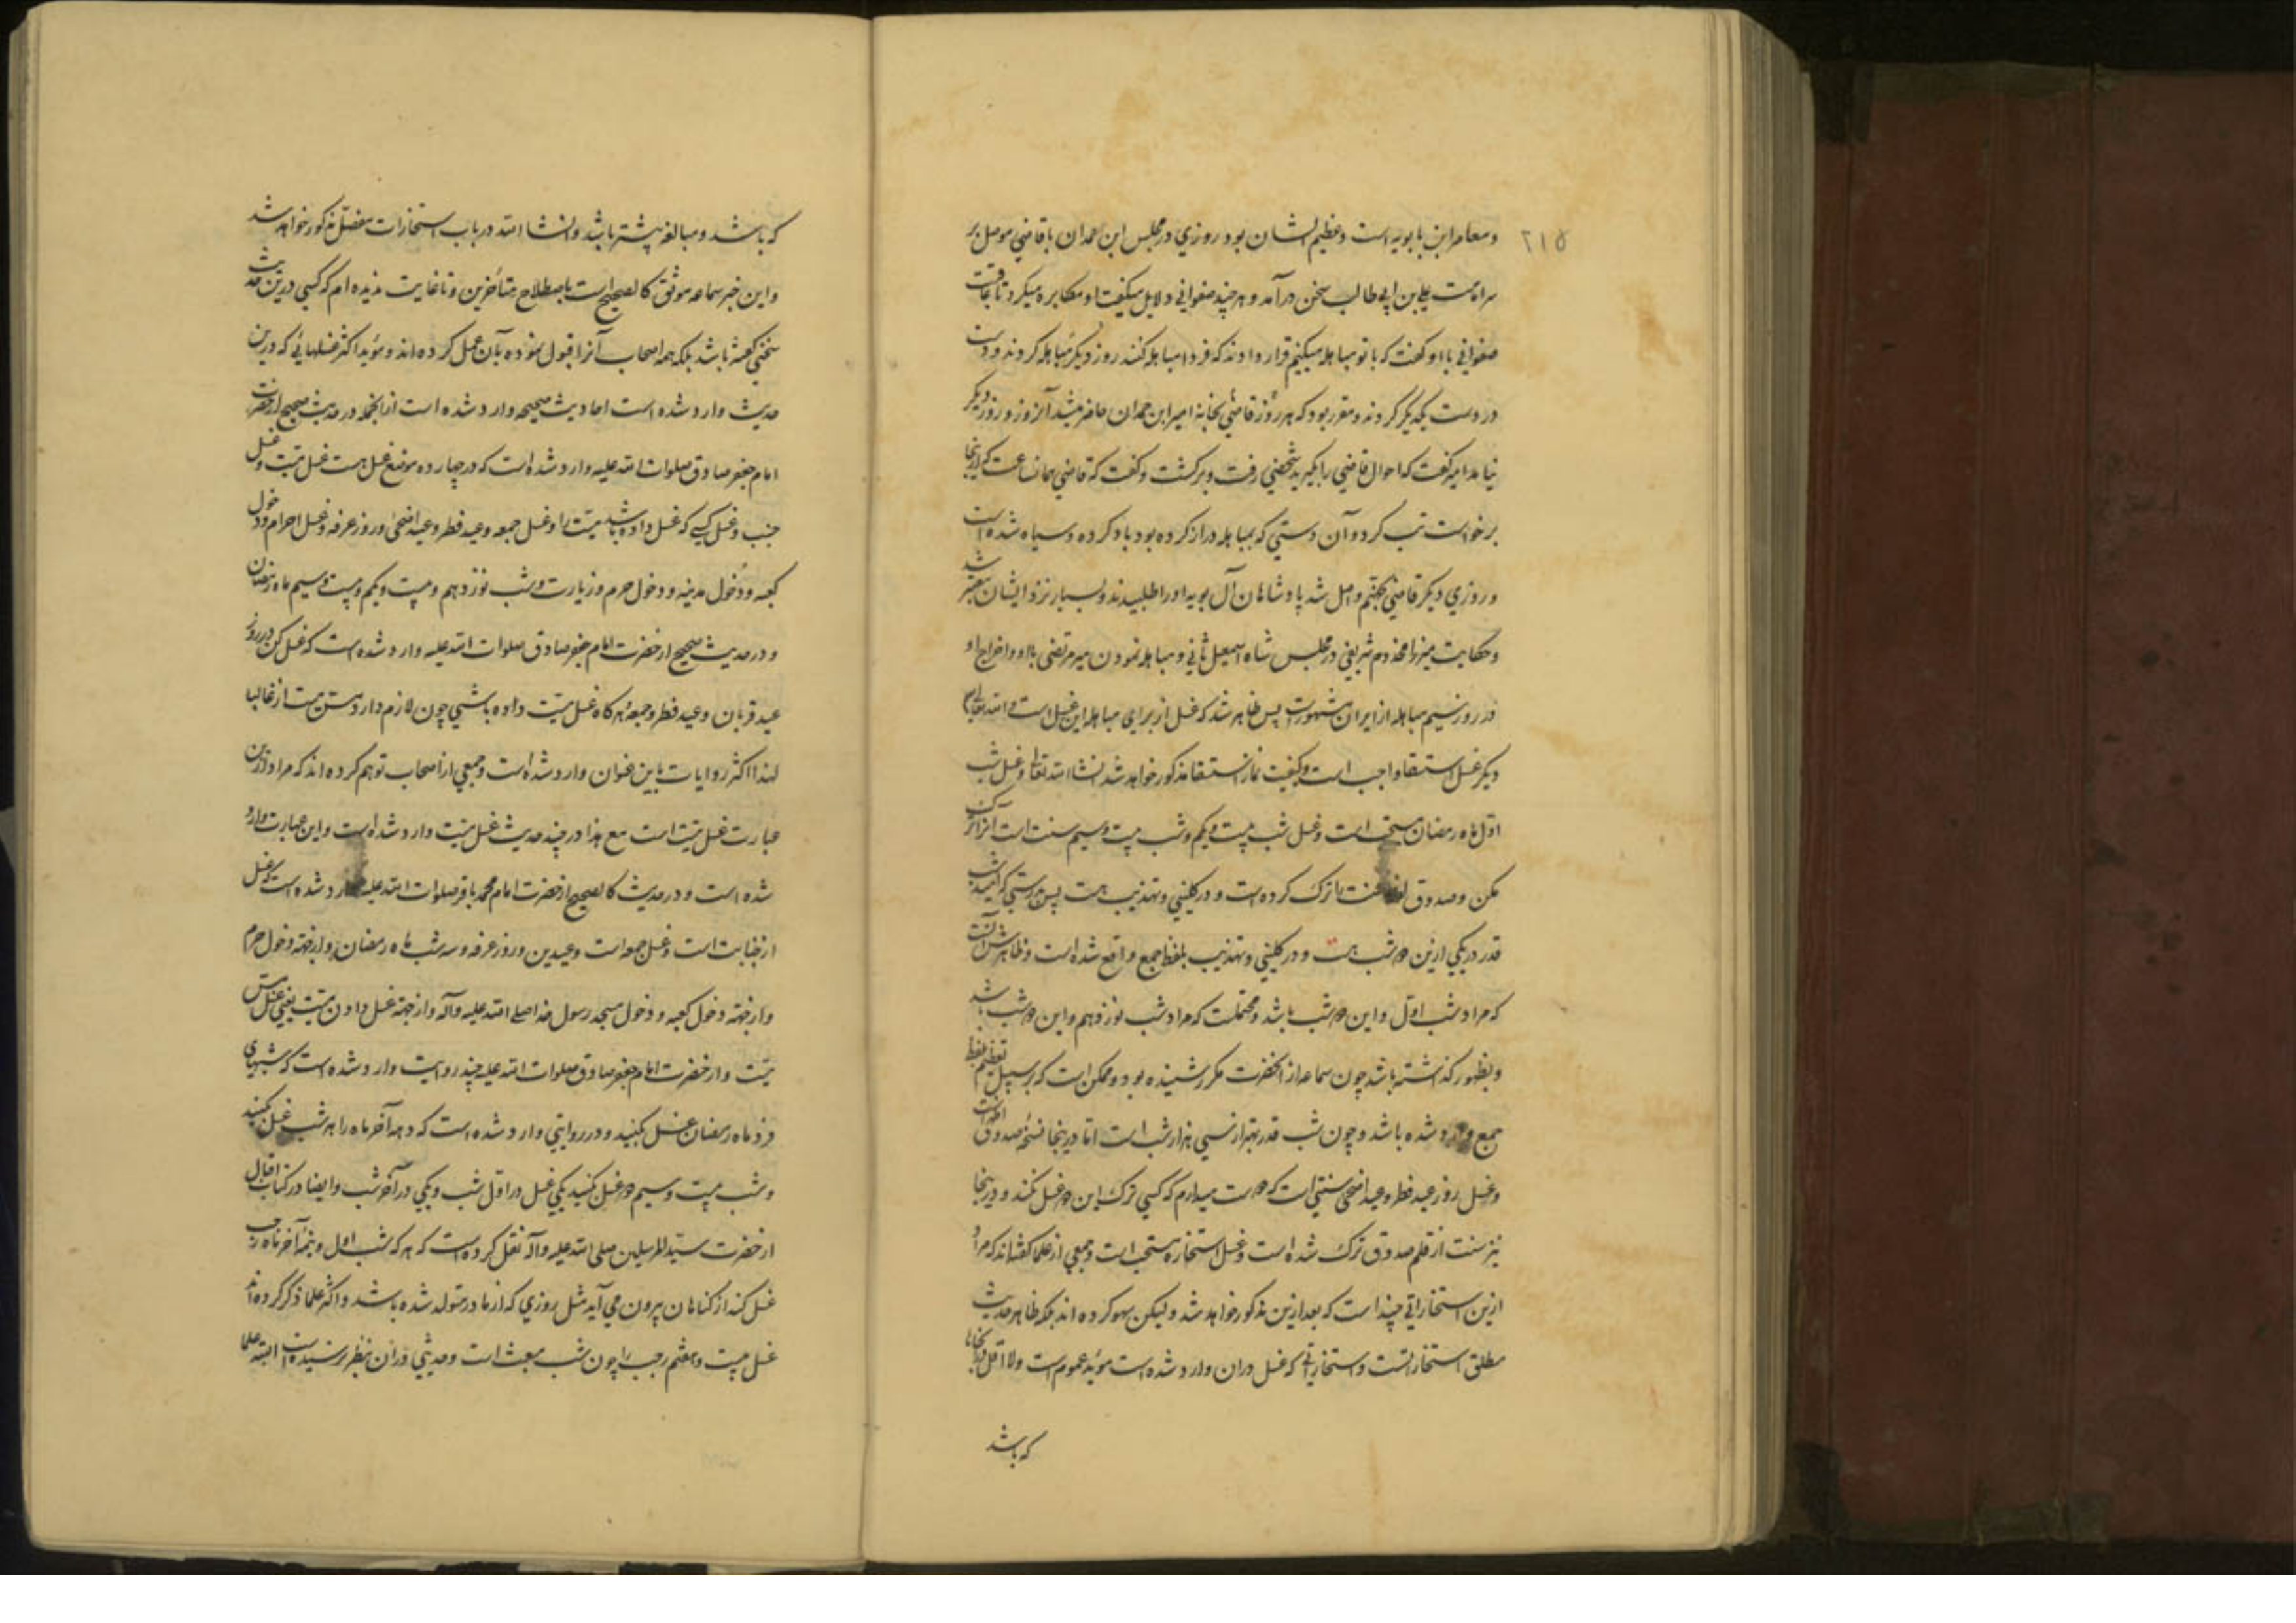 ۲۱۵
و معاصر ابن بابویه است و عظیم الشان بود روزی در مجلس ابن حمدان با قاضی موصل بر
سر امامت علی بن ابی طالب سخن درآمد و هر چند صفوانی دلایل میگفت او مکابره میکرد تا عاقبت
صفوانی با او گفت که با تو مباهله میکنیم قرار دادند که فردا مباهله کنند روز دیگر مباهله کردند و دست
در دست یکدیگر کردند و مقرر بود که هر روز قاضی بخانه امیر ابن حمدان حاضر میشد آنروز و روز دیگر
نیامد امیر گفت که احوال قاضی را بگیرید شخصی رفت و برگشت و گفت که قاضی همان ساعت که ازینجا
برخواست تب کرد و آن دستی که بمباهله دراز کرده بود باد کرده و سیاه شده است
و روزی دیگر قاضی بجهنم واصل شد پادشاهان آل بویه او را طلبیدند و بسیار نزد ایشان معتبر شد
و حکایت میرزا مخدوم شریفی در مجلس شاه اسمعیل ثانی و مباهله نمودن میر مرتضی با او و اخراج او
در روز سیم مباهله از ایران مشهورست پس ظاهر شد که غسل از برای مباهله این غسل است و الله تعالی
دیگر غسل استسقا واجب است و کیفیت نماز استسقا مذکور خواهد شد انشاالله تعالی و غسل شب
اول ماه رمضان مستحب است و غسل شب بیست و یکم و شب بیست و سیم سنت است آنرا ترک
مکن و صدوق لفظ سنت را ترک کرده است و در کلینی و تهذیب هست پس بدرستی که امید شب
قدر در یکی ازین دو شب هست و در کلینی و تهذیب بلفظ جمع واقع شده است و ظاهرش آنست
که مراد شب اول و این دو شب باشد و محتملست که مراد شب نوزدهم و این دو شب باشد
و بظهور گذاشته باشد چون سماعه از آنحضرت مکرر شنیده بود و ممکن است که بر سبیل تعظیم لفظ
جمع وارد شده باشد و چون شب قدر بهتر از سی هزار شب است اما در اینجا نسخه صدوق اظهر است
و غسل روز عید فطر و عید اضحی سنتی است که دوست میدارم که کسی ترک این دو غسل نکند و در اینجا
نیز سنت از قلم صدوق ترک شده است و غسل استخاره مستحب است و جمعی از علما گفته‌اند که مراد
ازین استخاراتی چند است که بعد ازین مذکور خواهد شد و لیکن سهو کرده اند بلکه ظاهر حدیث
مطلق استخارتست و استخاراتی که غسل در آن وارد شده است مؤید عموم است و لا اقل
که باشد
که باشد و مبالغه بیشتر باشد و انشاالله در باب استخارات مفصل مذکور خواهد شد
و این خبر سماعه موثق کالصحیح است باصطلاح متأخرین و تا غایت ندیده ام که کسی درین حدیث
سخنی گفته باشد بلکه همه اصحاب آنرا قبول نموده بآن عمل کرده اند و مؤید اکثر غسلهائی که درین
حدیث وارد شده است احادیث صحیحه وارد شده است از انجمله در حدیث صحیح از حضرت
امام جعفر صادق صلوات الله علیه وارد شده است که در چهارده موضع غسل هست غسل میت و غسل
جنب و غسل کسی که غسل داده باشد میت را و غسل جمعه و عید فطر و عید اضحی و روز عرفه و غسل احرام و دخول
کعبه و دخول مدینه و دخول حرم و زیارت و شب نوزدهم و بیست و یکم و بیست و سیم ماه رمضان
و در حدیث صحیح از حضرت امام جعفر صادق صلوات الله علیه وارد شده است که غسل کن در روز
عید قربان و عید فطر و جمعه و هر گاه غسل میت داده باشی چون لازم دارد شستن میت از غالبا
لهذا اکثر روایات باین عنوان وارد شده است و جمعی از اصحاب توهم کرده اند که مراد ازین
عبارت غسل میت است مع هذا در چند حدیث غسل میت وارد شده است و این عبارت وارد
شده است و در حدیث کالصحیح از حضرت امام محمد باقر صلوات الله علیه وارد شده است که غسل
از جنابت است و غسل جمعه است و عیدین و روز عرفه و سه شب ماه رمضان و از جهة دخول حرم
و از جهة دخول کعبه و دخول مسجد رسول خدا صلی الله علیه و آله و از جهة غسل دادن میت یعنی غسل مس
میت و از حضرت امام جعفر صادق صلوات الله علیه چند روایت وارد شده است که شبهای
فرد ماه رمضان غسل بکنید و در روایتی وارد شده است که دهه آخر ماه را هر شب غسل بکنید
و شب بیست و سیم دو غسل بکنید یکی غسل در اول شب و یکی در آخر شب و ایضا در کتاب اقبال
از حضرت سید المرسلین صلی الله علیه و آله نقل کرده است که هر که شب اول و نیمه و آخر ماه رجب
غسل کند از گناهان بیرون می آید مثل روزی که از مادر متولد شده باشد و اکثر علما ذکر کرده اند
غسل بیست و هفتم رجب را چون شب مبعث است و حدیثی در آن بنظر نرسیده است البته علما